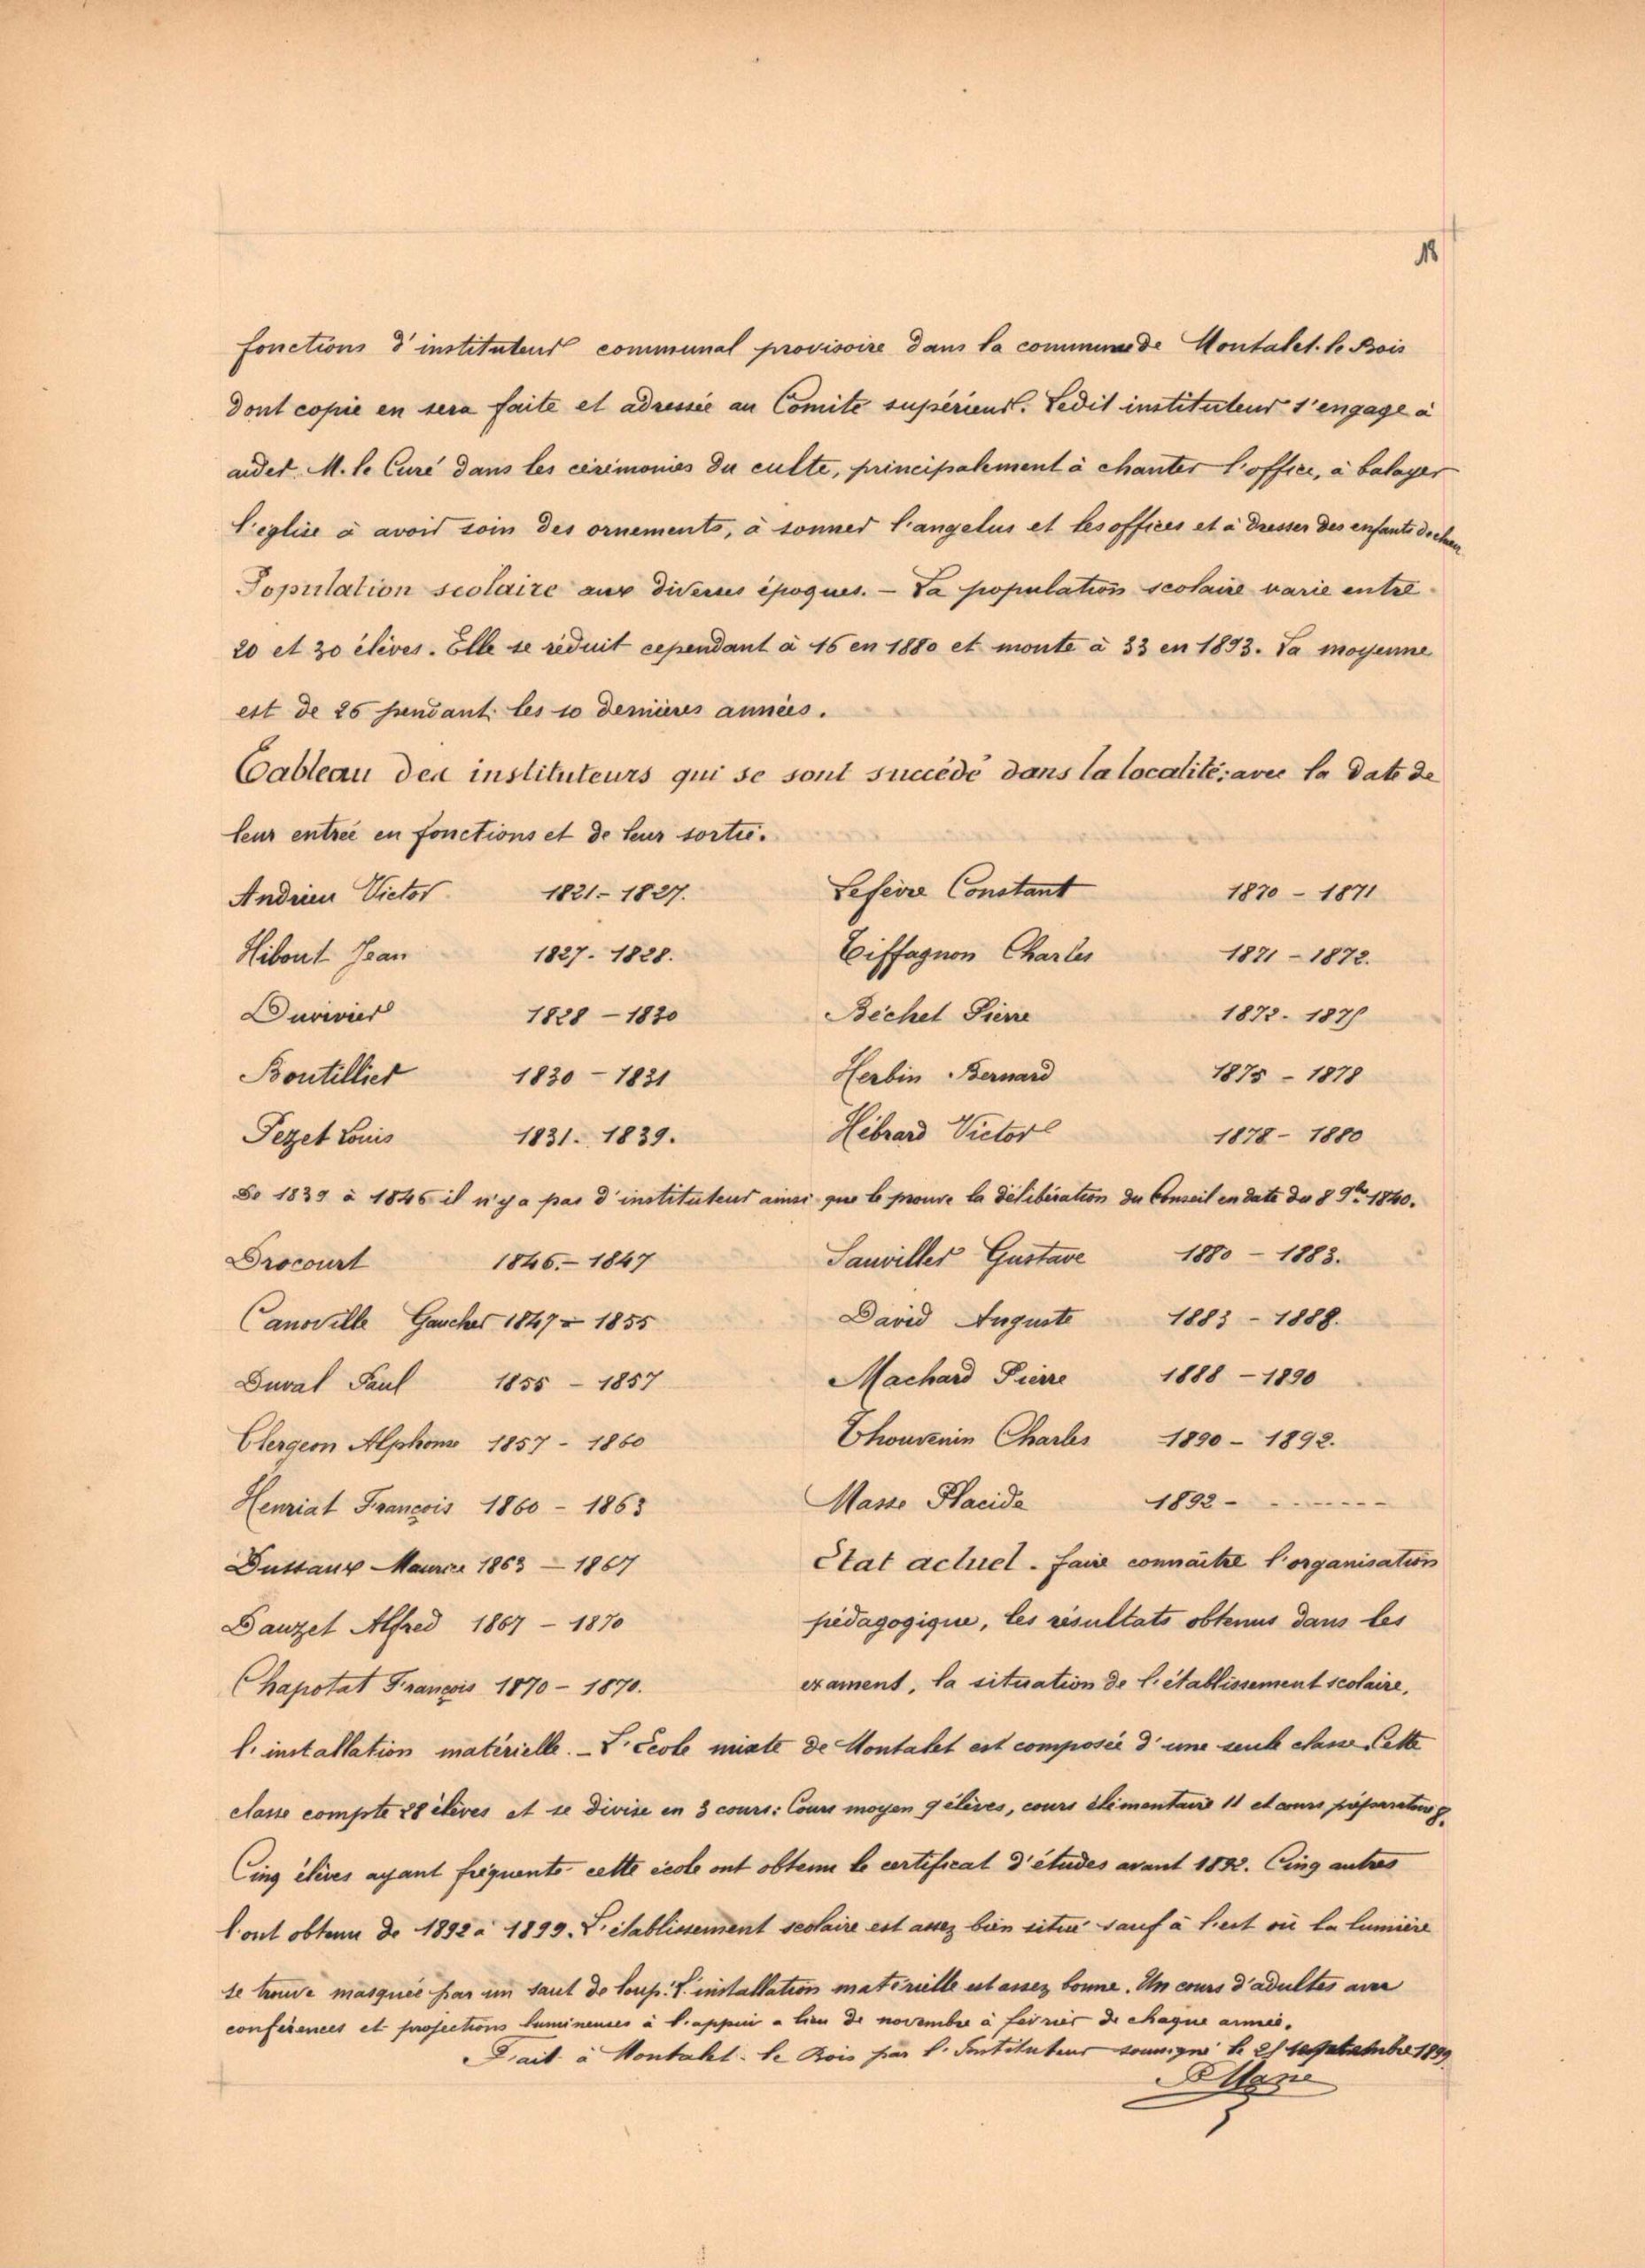 18
fonctions d'instituteur communal provisoire dans la commune de Montalet-le-Bois
dont copie en sera faite et adressée au Comité supérieur. Ledit instituteur s'engage à
aider M. le Curé dans les cérémonies du culte, principalement à chanter l'office, à balayer
l'église à avoir soin des ornements, à sonner l'angelus et les offices et à dresser des enfants de chœur
Population scolaire aux diverses époques. – La population scolaire varie entre
20 et 30 élèves. Elle se réduit cependant à 16 en 1880 et monte à 33 en 1893. La moyenne
est de 26 pendant les 10 dernières années.
Tableau des instituteurs qui se sont succédé dans la localité; avec la date de
leur entrée en fonctions et de leur sortie.
Andrieu Victor 1821 - 1827. Lefèvre Constant 1870 - 1871
Hibout Jean 1827 - 1828. Tiffagnon Charles 1871 - 1872.
Duvivier 1828 - 1830 Béchet Pierre 1872 - 1875
Boutillier 1830 - 1831 Herbin Bernard 1875 - 1878
Pezet Louis 1831 - 1839. Hébrard Victor 1878 - 1880
De 1839 à 1846 il n'y a pas d'instituteur ainsi que le prouve la délibération du Conseil en date du 8 9bre 1840.
Drocourt 1846 - 1847 Sauviller Gustave 1880 - 1883.
Canoville Gaucher 1847 - 1855 David Auguste 1883 - 1888.
Duval Paul 1855 - 1857 Machard Pierre 1888 - 1890
Clergeon Alphonse 1857 - 1860 Thouvenin Charles 1890 - 1892.
Henriat François 1860 - 1863 Masse Placide 1892 - -------
Dussaux Maurice 1863 - 1867 État actuel. faire connaître l'organisation
Dauzet Alfred 1867 - 1870 pédagogique, les résultats obtenus dans les
Chapotat François 1870 - 1870. exament, la situation de l'établissement scolaire,
l'installation matérielle. – L'École mixte de Montalet est composée d'une seule classe. Cette
classe compte 28 élèves et se divise en 3 cours: Cours moyen 9 élèves, cours élémentaire 11 et cours préparatoire 8.
Cinq élèves ayant fréquenté cette école ont obtenu le certificat d'études avant 1892. Cinq autres
l'ont obtenu de 1892 à 1899. L'établissement scolaire est assez bien situé sauf à l'est où la lumière
se trouve masquée par un saut de loup. L'installation matérielle est assez bonne. Un cours d'adultes avec
conférences et projections lumineuses à l'appui a lieu de novembre à février de chaque année.
Fait à Montalet-le Bois par l'Instituteur soussigné le septembre 1899